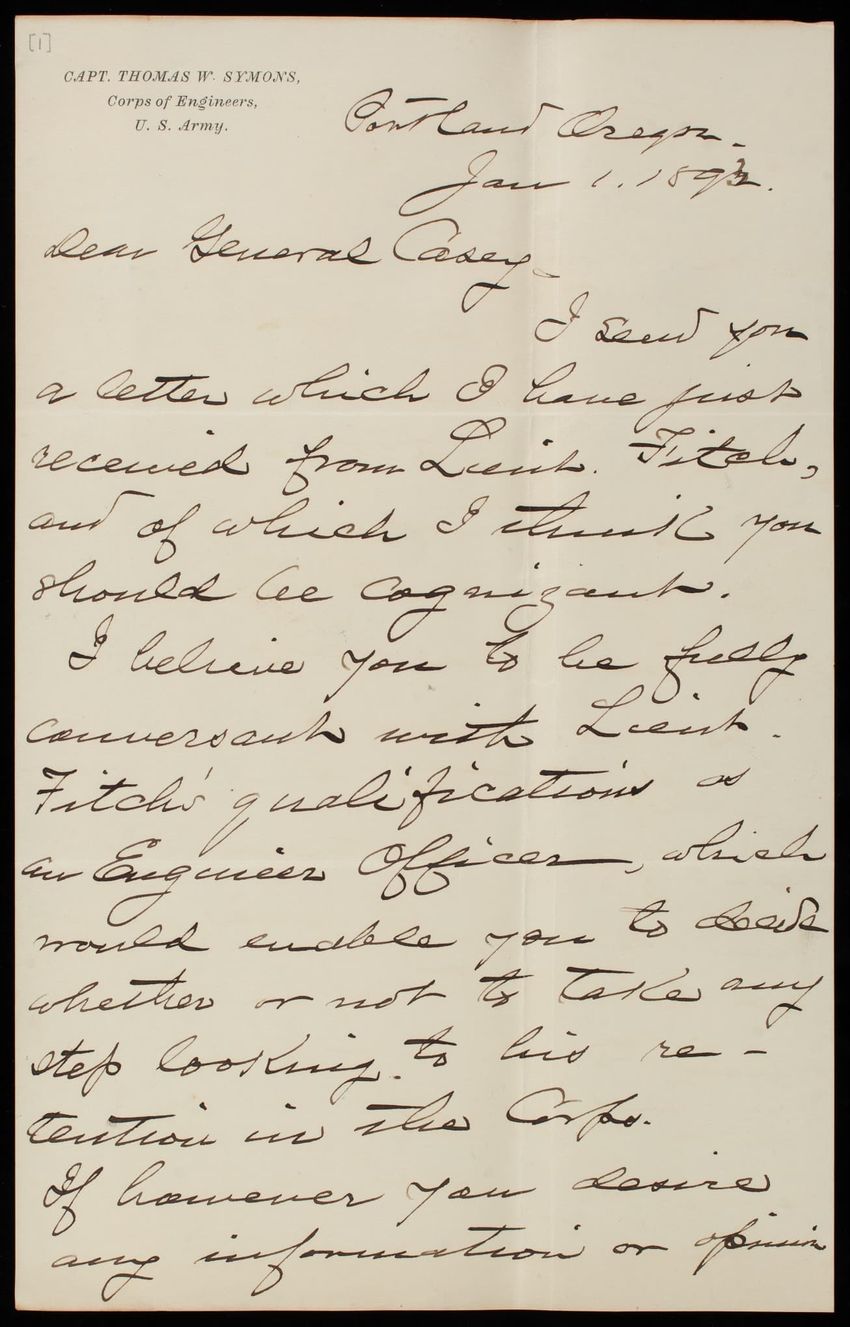 [1]
CAPT. THOMAS W. SYMONS,
Corps of Engineers,
U. S. Army.
Portland Oregon.
Jan 1. 1893.
Dear General Casey -
I send you
a letter which I have just
received from Lieut. Fitch,
and of which I think you
should be cognizant.
I believe you to be fully
conversant with Lieut.
Fitch's qualifications as
an Engineer Officer, which
would enable you to decide
whether or not to take any
step looking to his re-
tention in the Corps.
If however you desire
any information or opinion